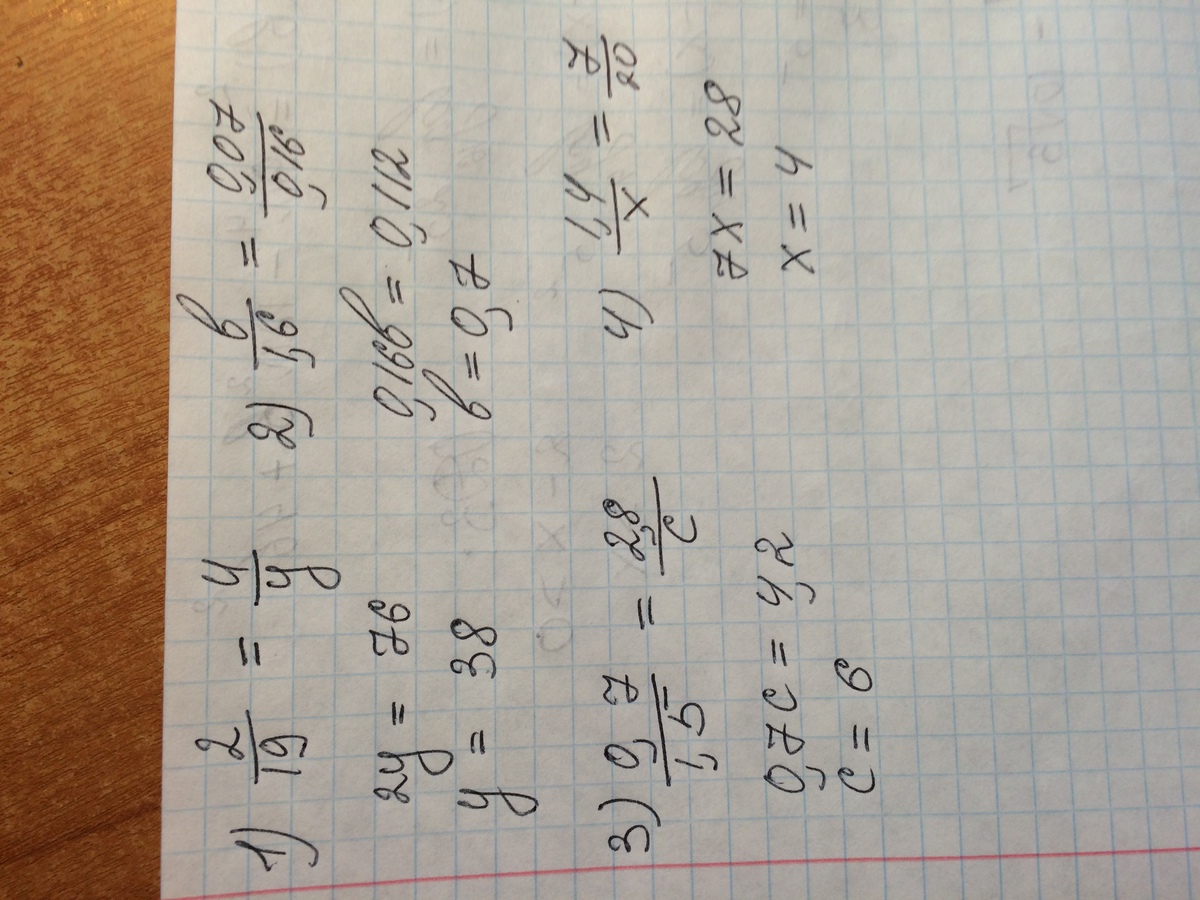 1) 2/19 = 4/y
2y = 76
y = 38
2) b/1,6 = 0,07/0,16
0,16b = 0,112
b = 0,7
3) 0,7/1,5 = 2,8/c
0,7c = 4,2
c = 6
4) 1,4/x = 7/20
7x = 28
x = 4